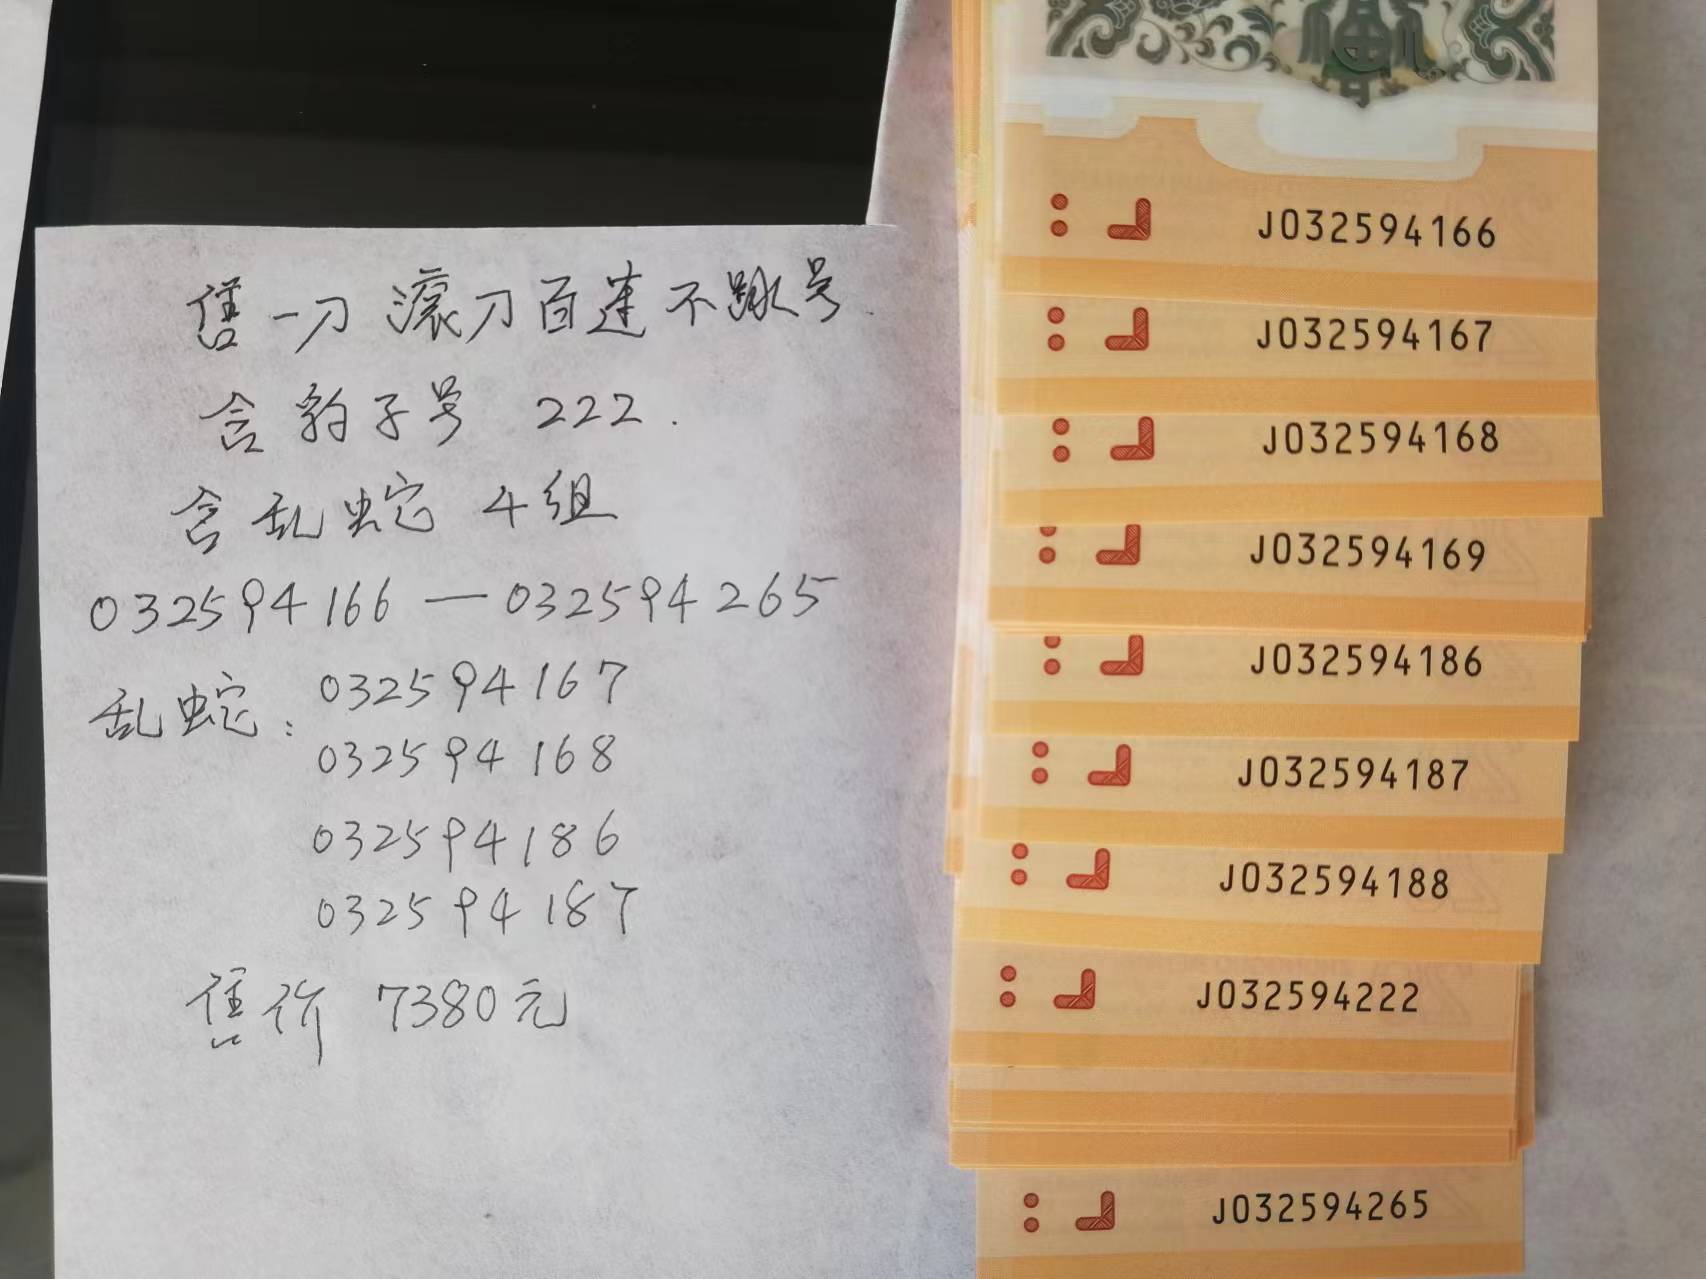 售一刀 滚刀百连不跳号.
含豹子号 222.
含乱蛇 4组
032594166 — 032594265
乱蛇: 032594167
032594168
032594186
032594187
售价 7380元
J032594166
J032594167
J032594168
J032594169
J032594186
J032594187
J032594188
J032594222
J032594265